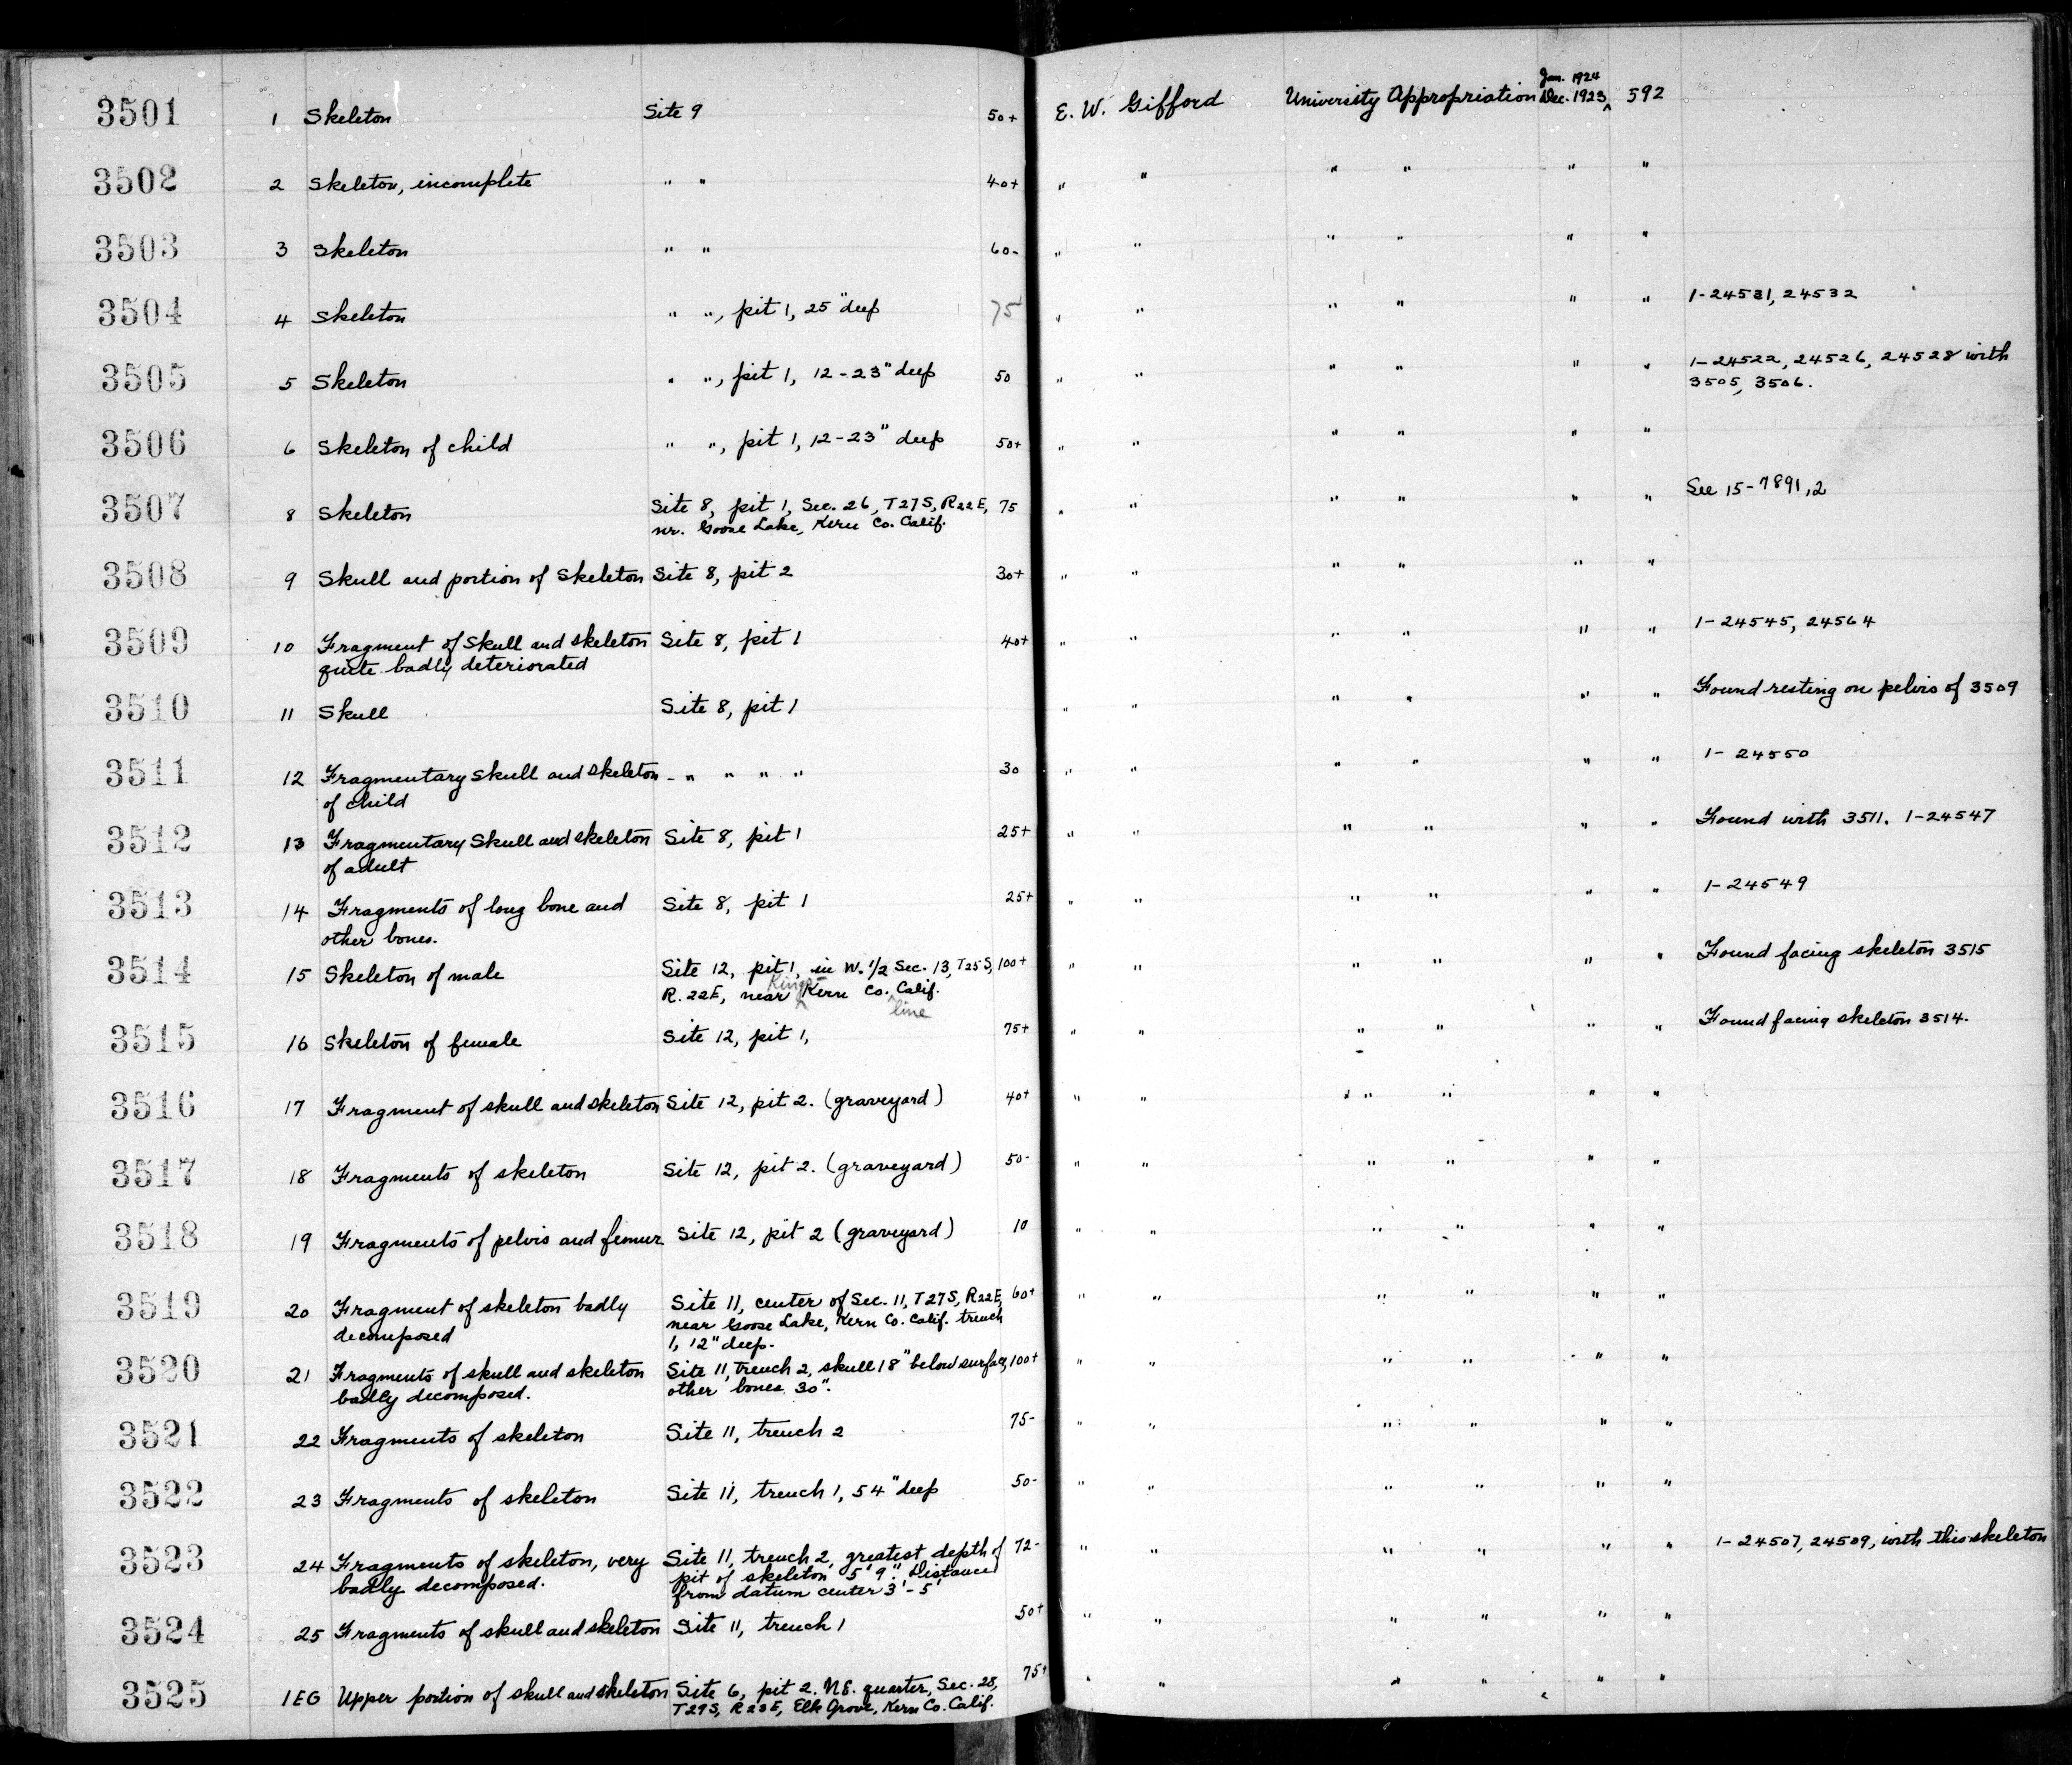 3501 1 Skeleton Site 9 50+ E. W. Gifford University Appropriation Jan. 1924 Dec. 1923 ^ 592
3502 2 Skeleton, incomplete " " 40+ " " " " " "
3503 3 Skeleton " " 60- " " " " " "
3504 4 Skeleton " ", pit 1, 25" deep 75 " " " " " " 1-24531, 24532
3505 5 Skeleton " ", pit 1, 12-23" deep 50 " " " " " " 1-24522, 24526, 24528 with
3505, 3506.
3506 6 Skeleton of child " ", pit 1, 12-23" deep 50+ " " " " " "
3507 8 Skeleton Site 8, pit 1, Sec. 26, T27S, R22E, 75 " " " " " " See 15-7891,2
nr. Goose Lake, Kern Co. Calif.
3508 9 Skull and portion of skeleton Site 8, pit 2 30+ " " " " " "
3509 10 Fragment of skull and skeleton Site 8, pit 1 40+ " " " " " " 1-24545, 24564
quite badly deteriorated
3510 11 Skull Site 8, pit 1 " " " " " " Found resting on pelvis of 3509
3511 12 Fragmentary skull and skeleton - " " " " 30 " " " " " " 1-24550
of child
3512 13 Fragmentary skull and skeleton Site 8, pit 1 25+ " " " " " " Found with 3511. 1-24547
of adult
3513 14 Fragments of long bone and Site 8, pit 1 25+ " " " " " " 1-24549
other bones.
3514 15 Skeleton of male Site 12, pit 1, in W. 1/2 Sec. 13, T25S, 100+ " " " " " " Found facing skeleton 3515
R. 22E, near Kings ^ Kern Co. ^ line Calif.
3515 16 Skeleton of female Site 12, pit 1, 75+ " " " " " " Found facing skeleton 3514.
3516 17 Fragment of skull and skeleton Site 12, pit 2. (graveyard) 40+ " " " " " "
3517 18 Fragments of skeleton Site 12, pit 2. (graveyard) 50- " " " " " "
3518 19 Fragments of pelvis and femur Site 12, pit 2 (graveyard) 10 " " " " " "
3519 20 Fragment of skeleton badly Site 11, center of Sec. 11, T27S, R22E, 60+ " " " " " "
decomposed near Goose Lake, Kern Co. Calif. trench
1, 12" deep.
3520 21 Fragments of skull and skeleton Site 11, trench 2, skull 18" below surface, 100+ " " " " " "
badly decomposed. other bones 30".
3521 22 Fragments of skeleton Site 11, trench 2 75- " " " " " "
3522 23 Fragments of skeleton Site 11, trench 1, 54" deep 50- " " " " " "
3523 24 Fragments of skeleton, very Site 11, trench 2, greatest depth of 72- " " " " " " 1-24507, 24509, with this skeleton
badly decomposed. pit of skeleton 5'9". Distance
from datum center 3'-5'
3524 25 Fragments of skull and skeleton Site 11, trench 1 50+ " " " " " "
3525 1EG Upper portion of skull and skeleton Site 6, pit 2. NE. quarter, Sec. 28, 75+ " " " " " "
T29S, R23E, Elk Grove, Kern Co. Calif.